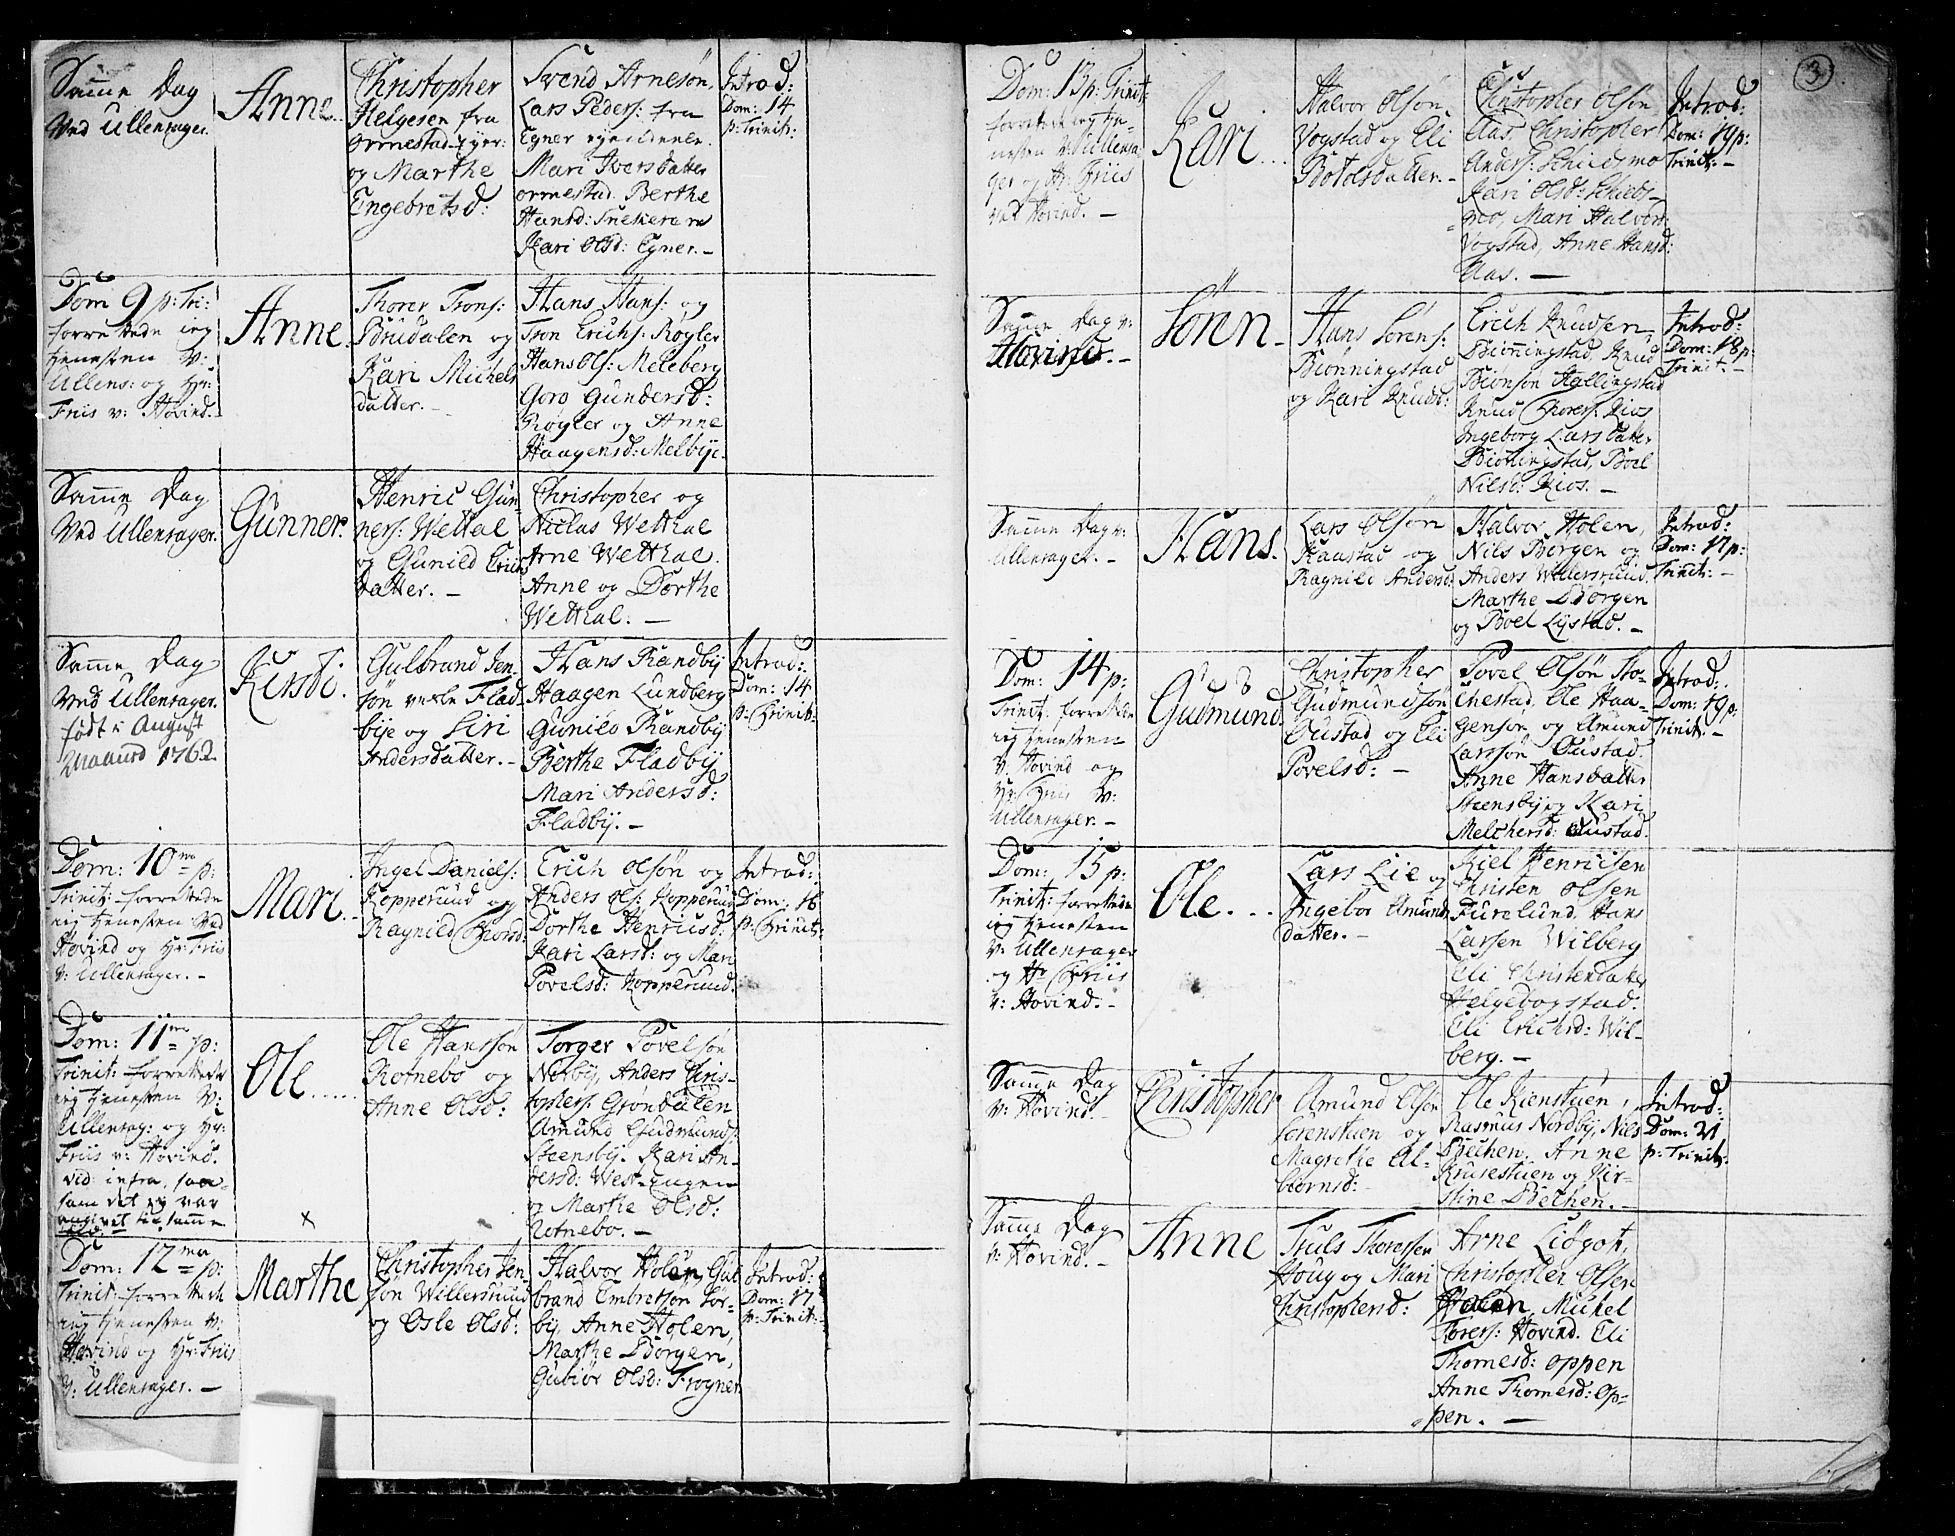 Samme Dag
Ved Ullensager.
Anne.
Christopher
Helgesen fra
ormestad
og Marthe
Engebretsd:
Svend Arnesön,
Lars Peders: fra
Egner
Mari Iversdatter
ormestad. Berthe
Hansd:
Kari Olsd: Egner. –
Introd:
Dom: 14
p: Trinit:
Dom 9 p: Tri:
forrettede ieg
tienesten V:
Ullens: og Hr:
Friis v: Hovind.
Anne.
Thorer Trons:
Brudalen og
Kari Michels
datter. –
Hans Hans: og
Tron Erichs: Røgler
Hans Ols: Meleberg
Goro Gundersd:
Røgler og Anne
Haagensd: Melbye.
Samme Dag
Ved Ullensager.
Gunner.
Henric Gun-
ners: Wettal
og Gunild Erichs
datter. –
Christopher og
Niclas Wetthal
Arne Wetthal.
Anne og Dorthe
Wetthal. –
Samme Dag
Ved Ullensager.
født i August
Maaned 1762
Kirsti.
Gulbrand Jen-
søn Flad
bye og Siri
Andersdatter. –
Hans Randby
Haagen Lundberg
Gunild Randby
Berthe Fladby
Mari Andersd:
Fladby. –
Introd:
Dom: 14
p: Trinit:
Dom: 10 me p:
Trinit: forrettede
ieg tienesten Ved
Hovind og Hr: Friis
V: Ullensager. –
Mari.
Ingel Daniels:
Kopperud og
Ragnild Thorsd:
Erich Olsøn og
Anders Ols: Kopperud
Dorthe Henricsd.
Kari Larsd: og Mari
Povelsd: Kopperud.
Introd:
Dom: 16
p: Trinit:
Dom: 11 me p:
Trinit: forrettede
ieg tienesten V:
Ullensag: og Hr:
Friis v: Hovind.
vid: infra,
som det ey var
angivet til samme

Ole
×
Ole Hanssøn
Rotnebo og
Anne Olsd:
Torger Povelsøn
Norby, Anders Chris-
tophers: Grondalen
Amund Gudmunds:
Steensby. Kari An-
dersd: West-
og Marthe Olsd:
Rotnebo. –
Dom: 12 ma p:
Trinit. forrettede
ieg tienesten V:
Hovind og Hr: Friis
V: Ullensager. –
Marthe
Christopher Jen-
søn Willersruud
og Osle Olsd:
Halvor Holen, Gul
brand Embretsøn Sør-
by, Anne Holen,
Marthe Borgen,
Gubiør Olsd: Frogner
Introd:
Dom: 17
p: Trinit:
3
Dom: 13 p: Trinit:
forrettede ieg tie-
nesten V: Ullensa-
ger og Hr. Friis
ved Hovind. –
Kari
Halvor Olsøn
Vogstad og Eli
Botolsdatter. –
Christopher Olsøn
Aas, Christopher
Anders: Schiedsmo
Kari Olsd: Schieds-
mo, Mari Halvors:
Vogstad, Anne Hansd:
Aas. –
Introd:
Dom: 19 p:
Trinit: –
Samme Dag v:
Hovind. –
Sören –
Hans Sörens:
Biönningstad
og Kari Knuds:
Erich Knudsen
Bionningstad, Knud
Biönsön Hallingstad
Knud Thores: Kios
Ingeborg Larsdatter
Bionningstad, Boel
Nilsd: Kios. –
Introd:
Dom: 18 p:
Trinit: –
Samme Dag v:
Ullensager. –
Hans.
Lars Olsøn
Raustad og
Ragnild Andersd:
Halvor Holen,
Nils Borgen og
Anders Willersruud.
Marthe Borgen
og Boel Lystad. –
Introd:
Dom: 17 p:
Trinit: –
Dom: 14 p:
Trinit. forrettede
ieg tienesten
V: Hovind og
Hr: Friis V:
Ullensager. –
Gudmund.
Christopher
Gudmundsøn
Oustad og Eli
Povelsd: –
Povel Olsøn Sto-
chestad, Ole Haa-
gensøn og Amund
Larssøn Oustad.
Anne Hansdatter
Steensby og Kari
Melchersd: Oustad.
Introd:
Dom: 19 p:
Trinit: –
Dom: 15 p:
Trinit: forrettede
ieg tienesten
V: Ullensager
og Hr Friis
V: Hovind. –
Ole.
Lars Lie og
Ingebor Amunds
datter. –
Kiel Henricsen
Christen Olsen
Furelund. Hans
Larsen Wilberg
Eli Christendatter
Helgebogstad.
Eli Erichsd: Wil-
berg. –
Samme Dag
V: Hovind. –
Christopher
Amund Olsøn
Sorenstuen og
Magrethe Al-
biörnsd:
Ole Kienstuen,
Rasmus Nordby, Nils
Bechen. Anne
Krusestuen og Kir-
stine Bechen. –
Introd:
Dom: 21
p: Trinit:
Samme Dag
V: Hovind. –
Anne
Truls Thoressen
Houg og Mari
Christophersd:
Arne Liögot,
Christopher Olsen
Holen, Michel
Tores: Hovind. Eli
Thomesd: Oppen
Anne Thomesd: Op-
pen. –